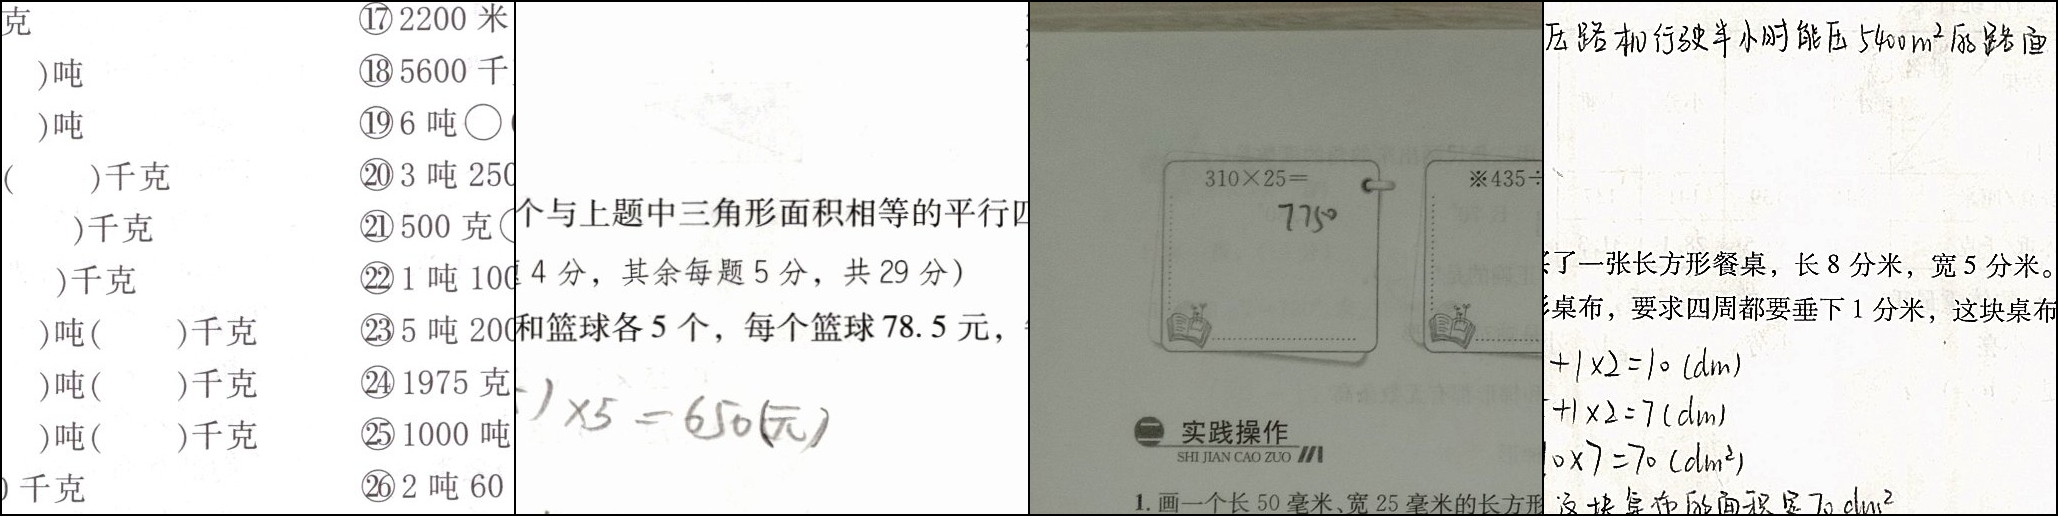 克
)吨
)吨
( )千克
)千克
)千克
)吨( )千克
)吨( )千克
)吨( )千克
)千克
⑰2200 米
⑱5600 千
⑲6 吨○
⑳3 吨 250
㉑500 克
㉒1 吨 100
㉓5 吨 200
㉔1975 克
㉕1000 吨
㉖2 吨 60
个与上题中三角形面积相等的平行四
4 分，其余每题 5 分，共 29 分）
和篮球各 5 个，每个篮球 78.5 元，
)×5=650(元)
310×25=
7750
※435÷
二 实践操作
SHI JIAN CAO ZUO
1. 画一个长 50 毫米、宽 25 毫米的长方形
压路机行驶半小时能压5400m²的路面
了一张长方形餐桌，长 8 分米，宽 5 分米。
桌布，要求四周都要垂下 1 分米，这块桌布
+1×2=10(dm)
+1×2=7(dm)
10×7=70(dm²)
这块桌布的面积是70dm²